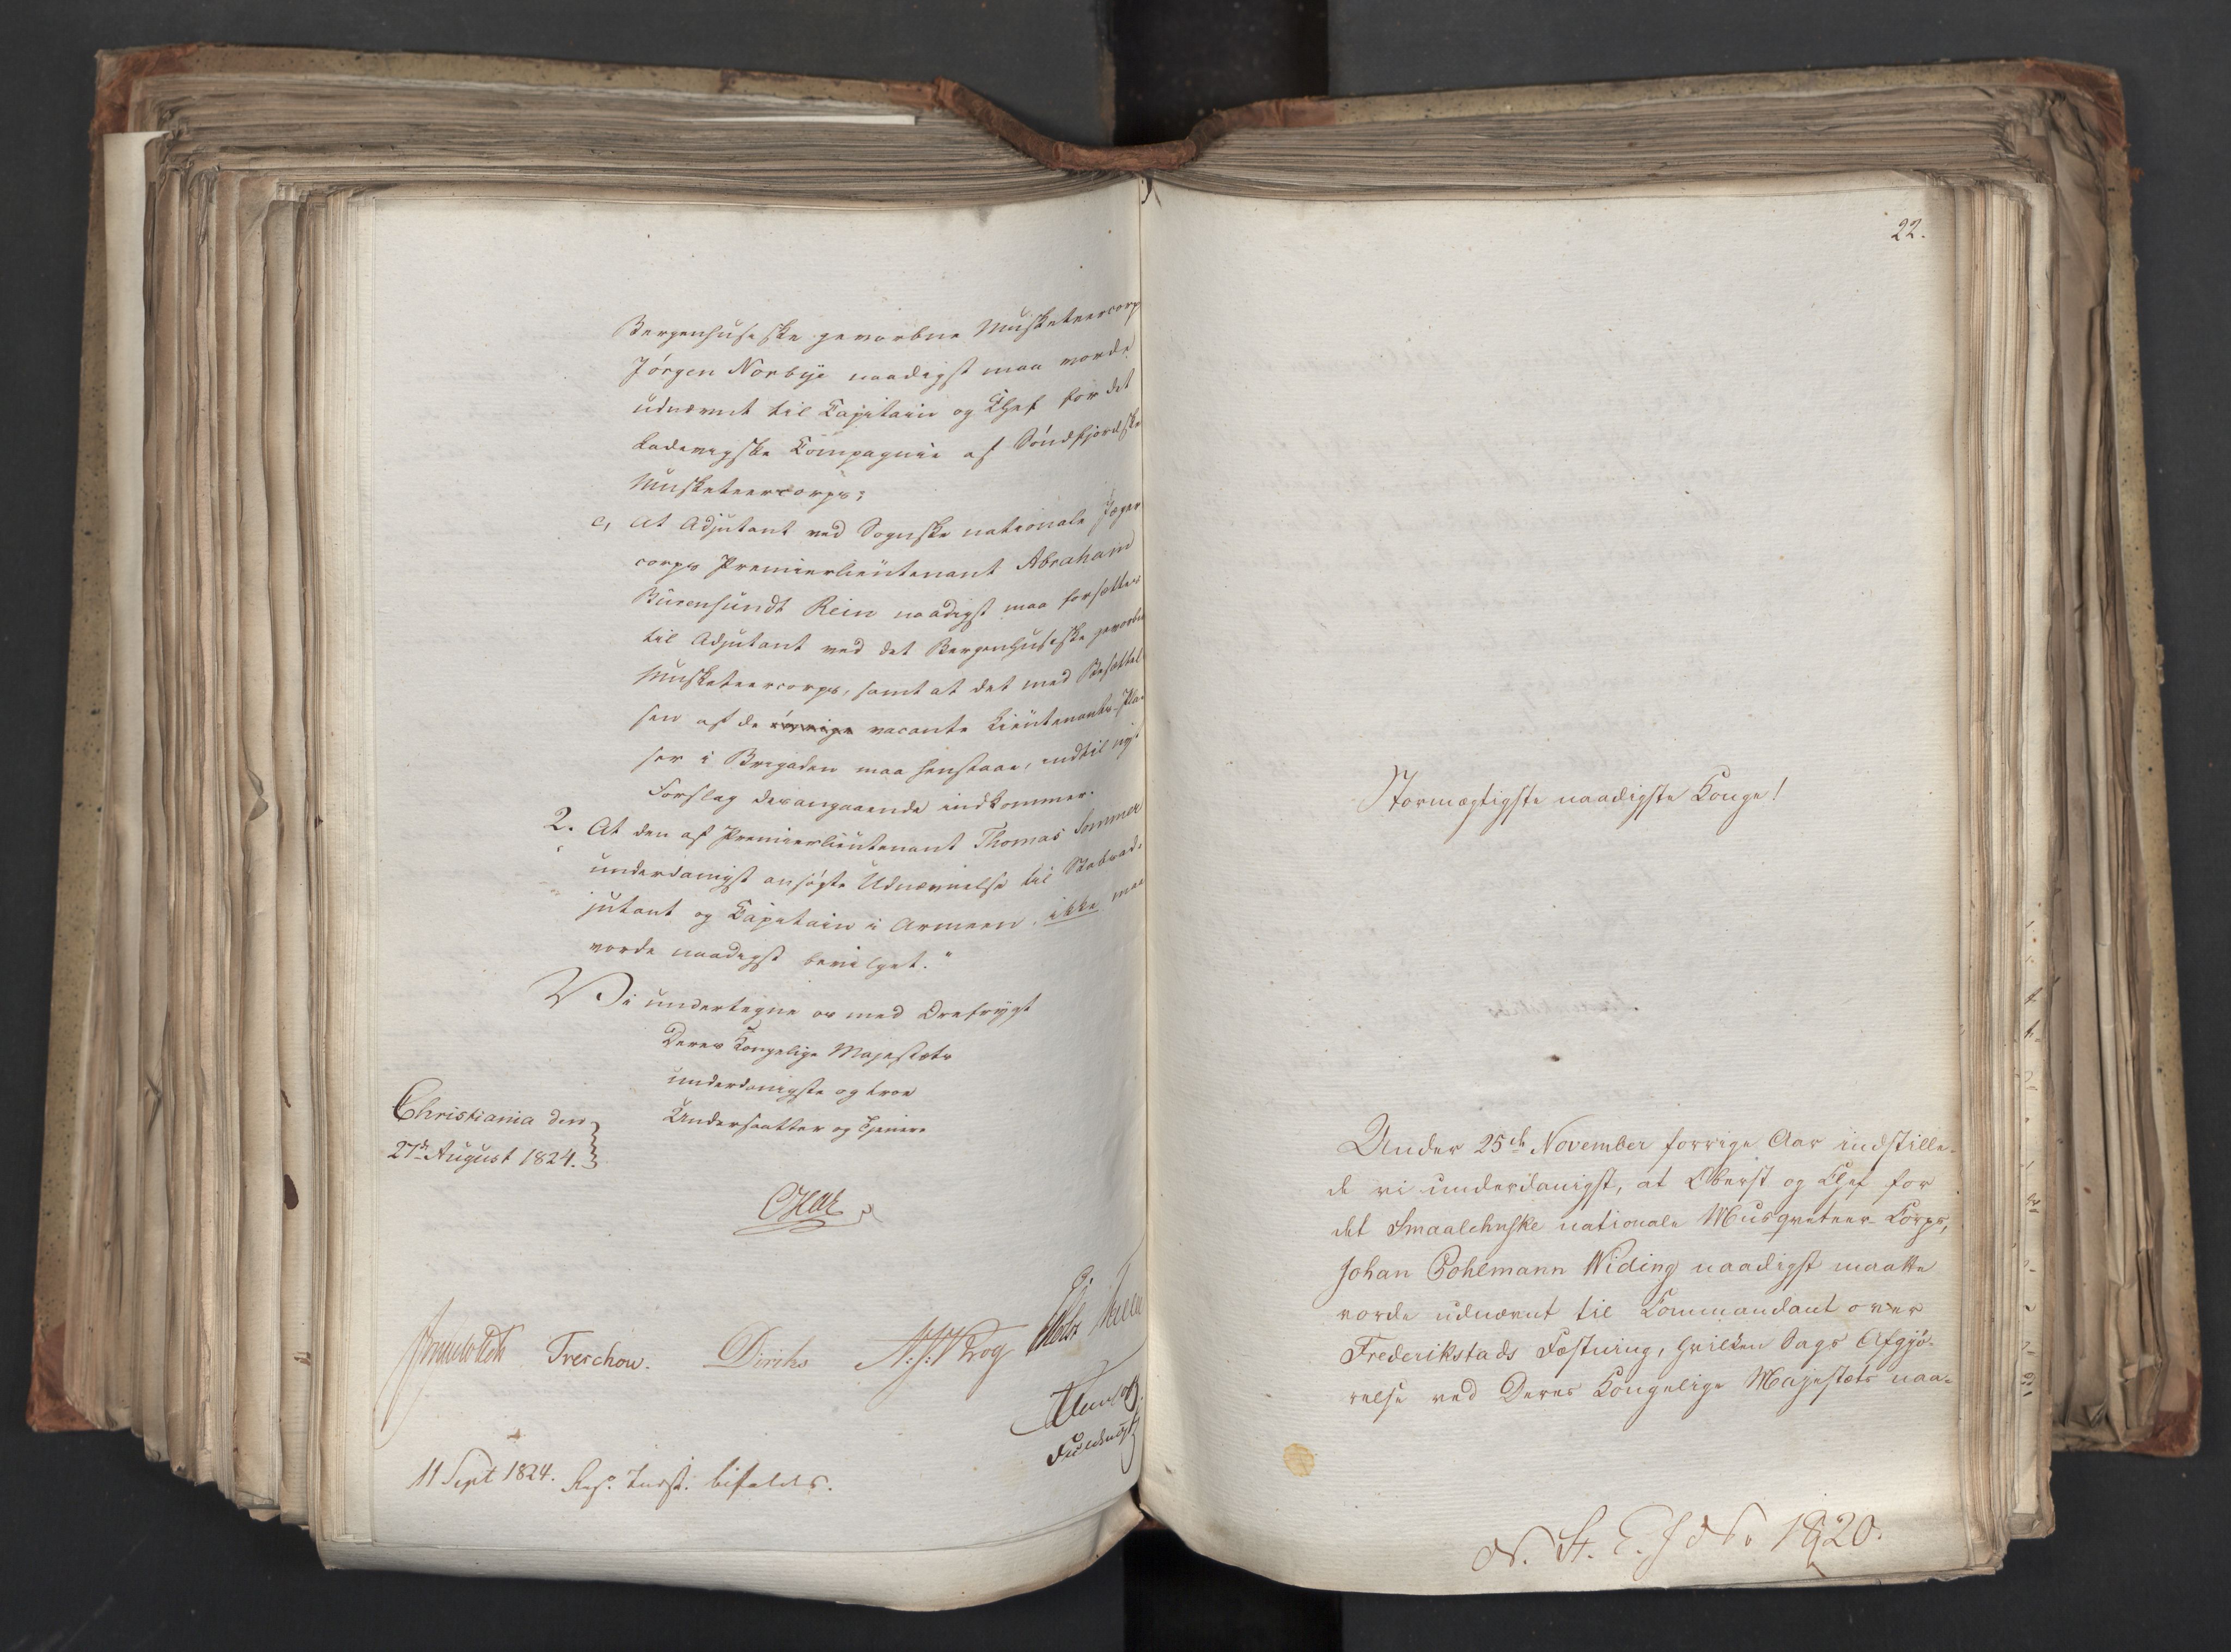 Bergenhusiske gevorbne Musketeercorps
Jörgen Norbye naadigst maa vorde
udnævnt til Capitain og Chef for det
Ladevigske Compagnie af Söndfjordske
Musketeercorps;
c, At Adjutant ved Sognske nationale Jæger
corps Premierlieutenant Abraham
Bürensundt Rein naadigst maa forsættes
til Adjutant ved det Bergenhusiske gevorbne
Musketeercorps, samt at det med Besættel
sen af de vacante Lieutenants Pla-
ser i Brigaden maa henstaae, indtil nyt
Forslag desangaaende indkommer.
2. At den af Premierlieutenant Thomas Sommer
underdanigst ansögte Udnævnelse til Stabsad-
jutant og Capitain i Armeen, ikke maa
vorde naadigst bevilget."
Vi undertegne os med Ærefrygt
Deres Kongelige Majestæts
underdanigste og troe
Undersaatter og Tjenere
Christiania den
27de August 1824.
Treschow. Diriks N. J. Krog
11 Sept 1824. Res. Indst. bifaldes.
22.
Stormægtigste naadigste Konge!
Under 25de November forrige Aar indstille-
de vi underdanigst, at Oberst og Chef for
det Smaalehnske nationale Musqueteer-Corps,
Johan Pohlmann Widing naadigst maatte
vorde udnævnt til Commandant over
Frederikstads Fæstning, hvilken Sags Afgjö-
relse ved Deres Kongelige Majestæts naa-
N. St. E. J No 1820.